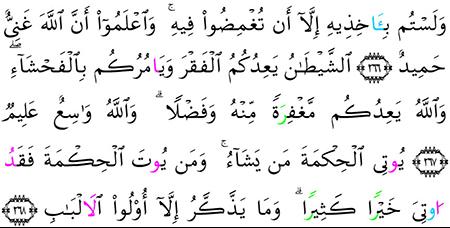 وَلَسْتُم بِـَٔاخِذِيهِ إِلَّآ أَن تُغْمِضُوا۟ فِيهِ ۚ وَٱعْلَمُوٓا۟ أَنَّ ٱللَّهَ غَنِىٌّ
حَمِيدٌ ٢٦٦ ٱلشَّيْطَـٰنُ يَعِدُكُمُ ٱلْفَقْرَ وَيَامُرُكُم بِٱلْفَحْشَآءِ ۖ
وَٱللَّهُ يَعِدُكُم مَّغْفِرَةً مِّنْهُ وَفَضْلًا ۗ وَٱللَّهُ وَٰسِعٌ عَلِيمٌ
٢٦٧ يُوتِى ٱلْحِكْمَةَ مَن يَشَآءُ ۚ وَمَن يُوتَ ٱلْحِكْمَةَ فَقَدُ
ا۟وتِىَ خَيْرًا كَثِيرًا ۗ وَمَا يَذَّكَّرُ إِلَّآ أُو۟لُوا۟ ٱلَالْبَـٰبِ ٢٦٨